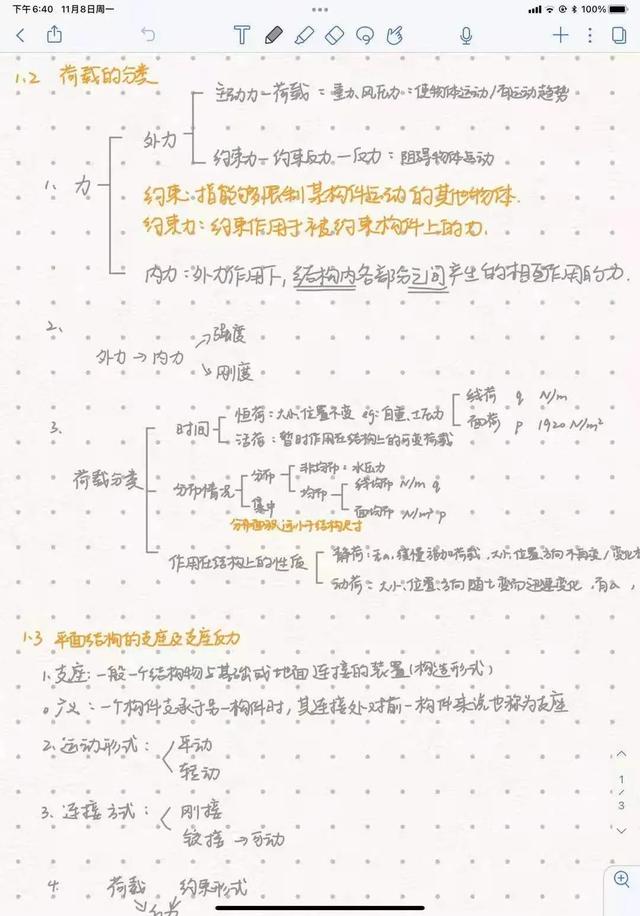 下午6:40 11月8日周一
100%
1.2 荷载的分类
主动力—荷载 = 重力、风压力 : 使物体运动/有运动趋势
外力
约束力—约束反力—反力 : 阻碍物体运动
1. 力
约束 : 指能够限制某构件运动的其他物体.
约束力 : 约束作用于被约束构件上的力.
内力 : 外力作用下, 结构内各部分之间产生的相互作用的力.
2.
外力 → 内力
强度
刚度
3.
荷载分类
时间
恒荷 : 大小、位置不变 eg: 自重、土压力
线荷 q N/m
面荷 p 1920 N/m²
活荷 : 暂时作用在结构上的可变荷载
分布情况
分布
非均布 : 水压力
均布
线均布 N/m q
面均布 N/m² p
集中
分布面积远小于结构尺寸
作用在结构上的性质
静荷 : 无a, 缓慢增加荷载, 大小、位置、方向不再变/变化
动荷 = 大小、位置、方向随t变而迅速变化, 有a,
1.3 平面结构的支座及支座反力
1. 支座 : 一般一个结构物与基础或地面连接的装置(构造形式)
广义 : 一个构件支承于另一构件时, 其连接处对前一构件来说也称为支座
2. 运动形式 :
平动
转动
3. 连接方式 :
刚接
铰接 → 可动
4. 荷载 约束形式
1
3